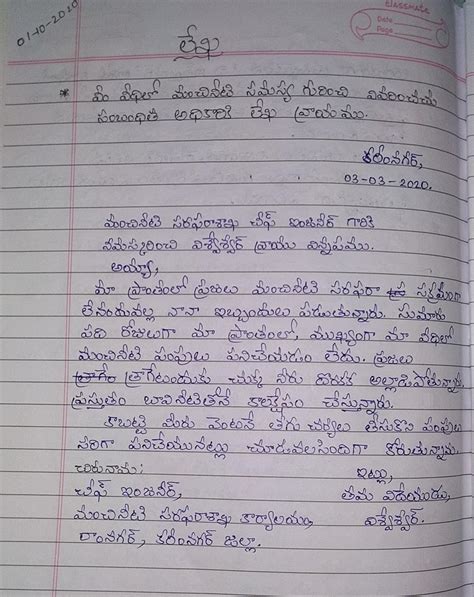 01-10-2020
classmate
Date
Page
లేఖ
* మీ వీధిలో మంచినీటి సమస్య గురించి వివరించుచు
సంబంధిత అధికారికి లేఖ వ్రాయుము.
కరీంనగర్,
03-03-2020.
మంచినీటి సరఫరాశాఖ చీఫ్ ఇంజనీర్ గారికి
నమస్కరించి విశ్వేశ్వర్ వ్రాయు విన్నపము.
అయ్యా,
మా ప్రాంతంలో ప్రజలు మంచినీటి సరఫరా సక్రమంగా
లేనందువల్ల నానా ఇబ్బందులు పడుతున్నారు. సుమారు
పది రోజులుగా మా ప్రాంతంలో, ముఖ్యంగా మా వీధిలో
మంచినీటి పంపులు పనిచేయడం లేదు. ప్రజలు
త్రాగేటందుకు చుక్క నీరు దొరకక అల్లాడిపోతున్నారు.
ప్రస్తుతం బావినీటితోనే కాలక్షేపం చేస్తున్నారు.
కాబట్టి మీరు వెంటనే తగు చర్యలు తీసుకొని పంపులు
సరిగా పనిచేయునట్లు చూడవలసిందిగా కోరుతున్నాను.
చిరునామా:
ఇట్లు,
చీఫ్ ఇంజనీర్,
తమ విధేయుడు,
మంచినీటి సరఫరాశాఖ కార్యాలయం,
విశ్వేశ్వర్.
రాంనగర్, కరీంనగర్ జిల్లా.